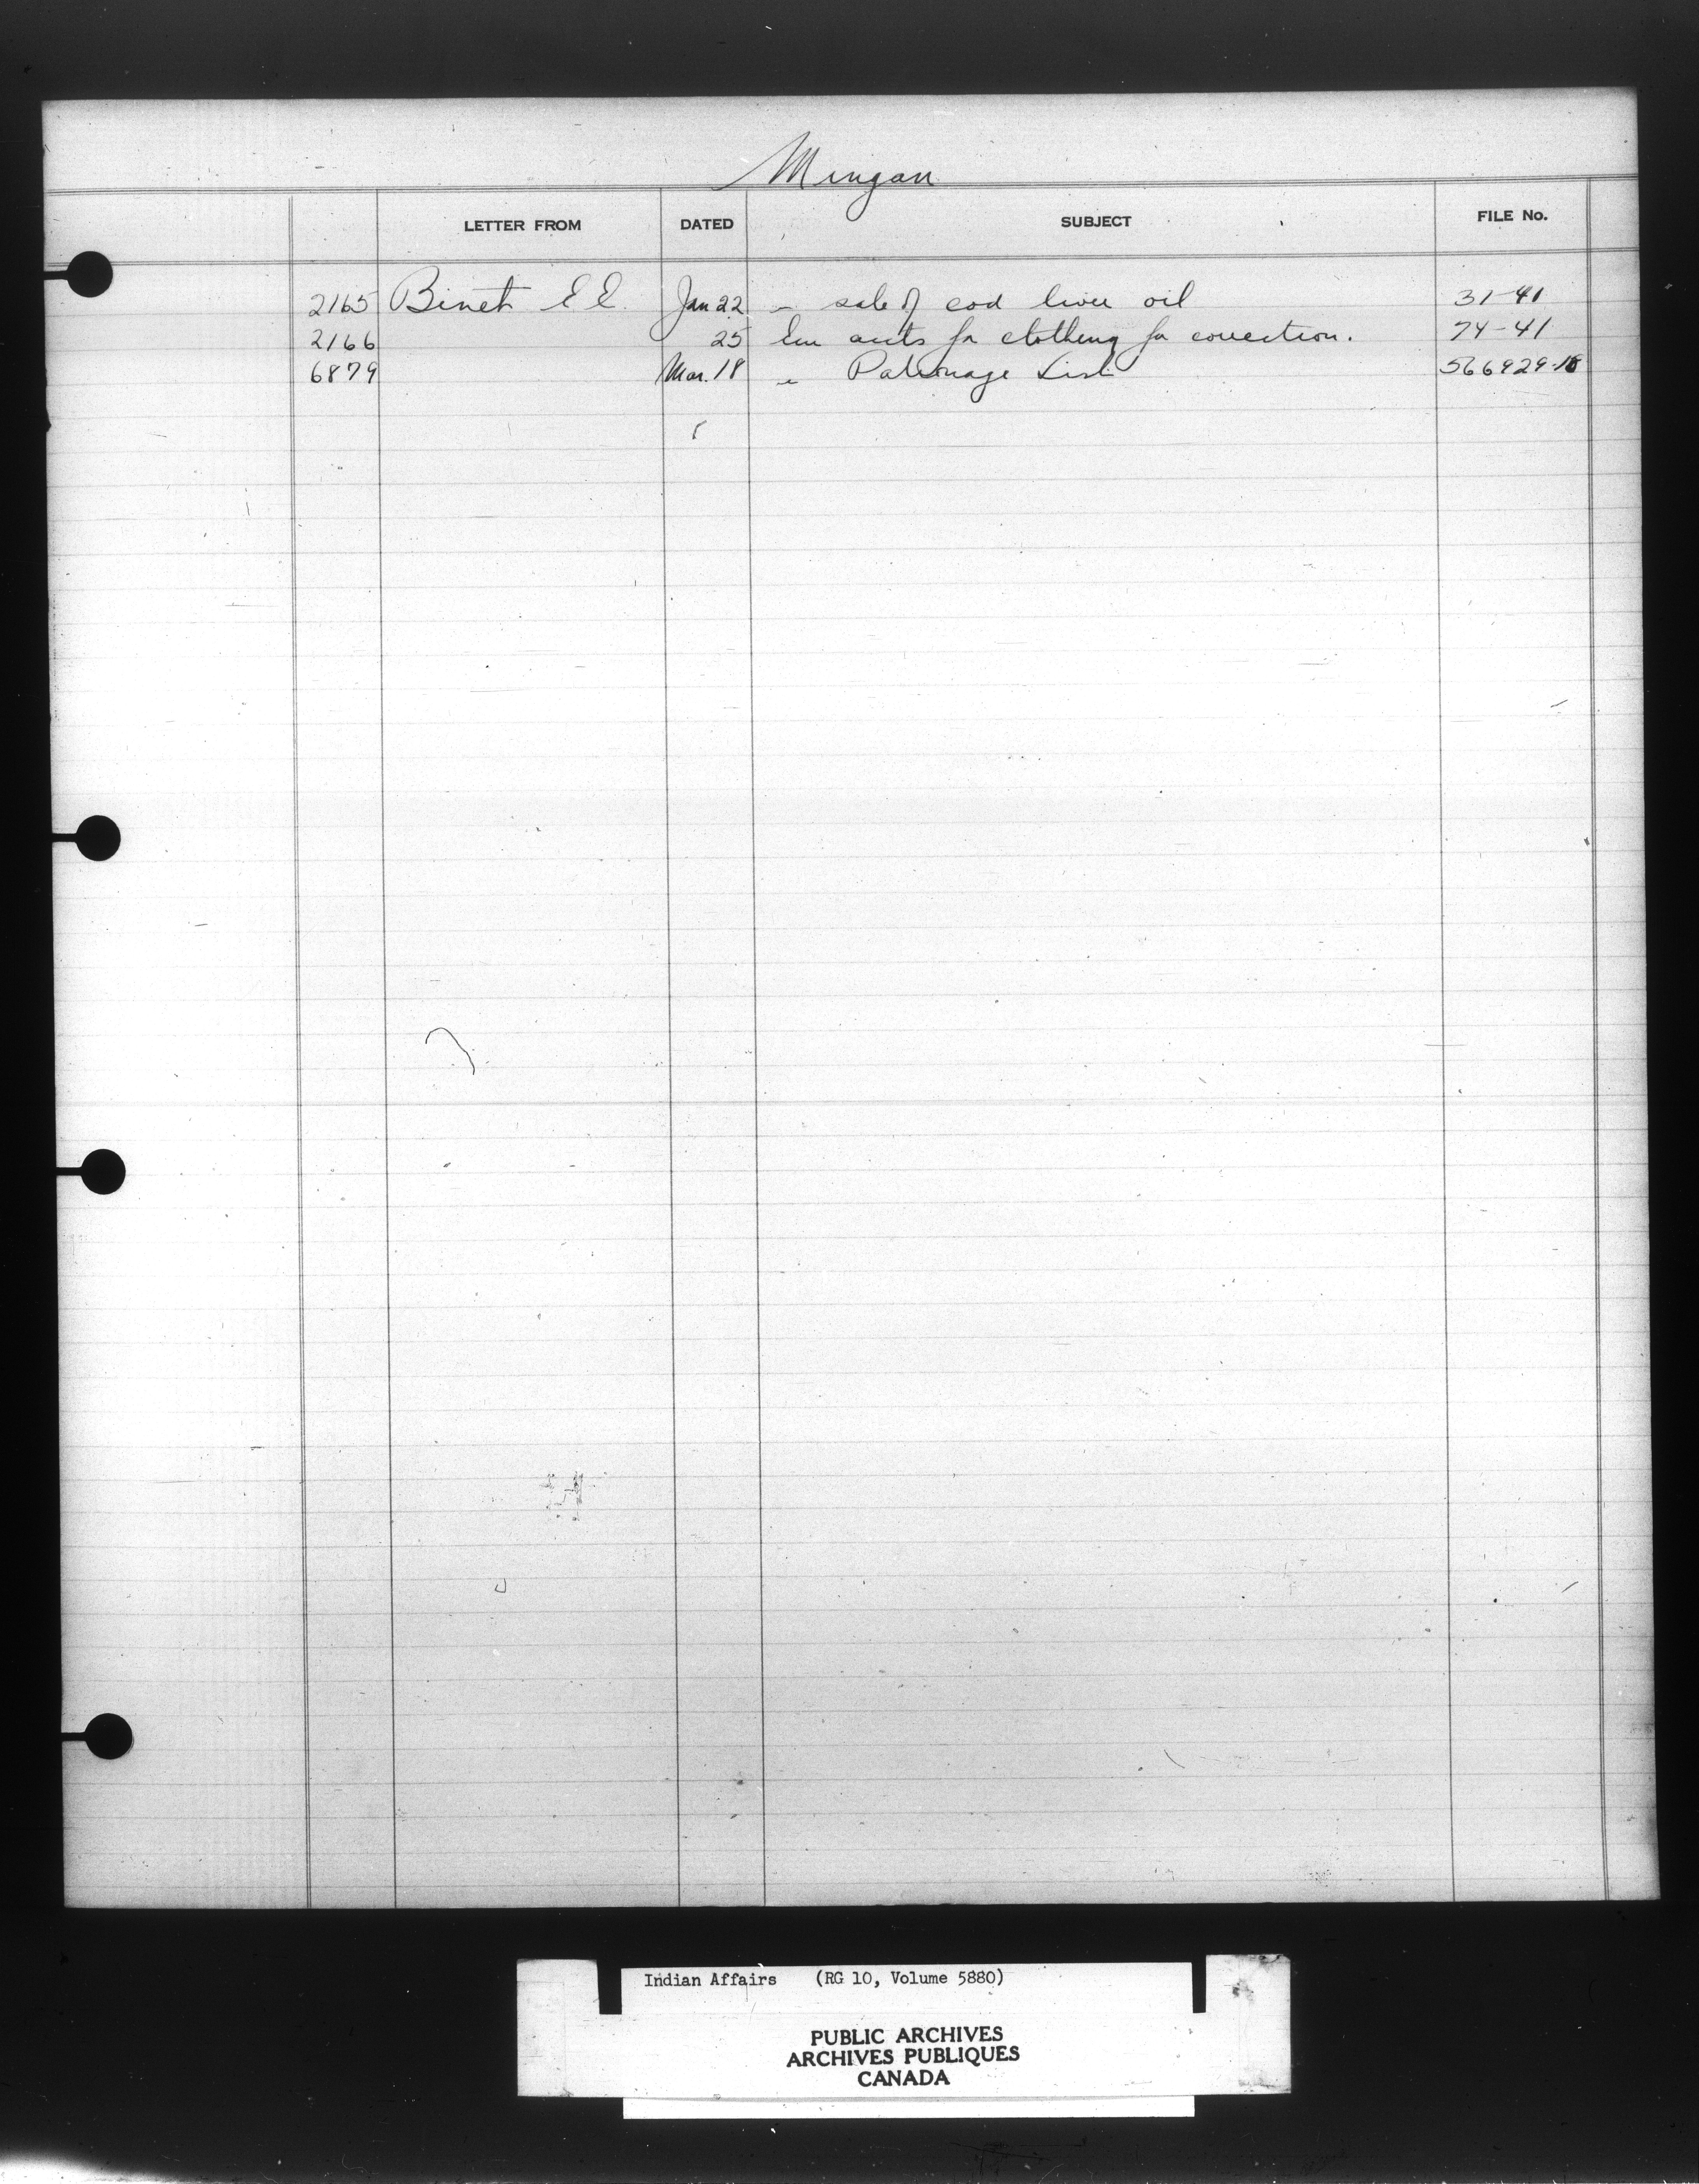 Mingan
LETTER FROM DATED SUBJECT FILE No.
2165 Binet E E. Jan 22 " sale of cod liver oil 31-41
2166 25 accts for clothing for correction. 74-41
6879 Mar. 18 " Patronage List 566929-18
Indian Affairs (RG 10, Volume 5880)
PUBLIC ARCHIVES
ARCHIVES PUBLIQUES
CANADA